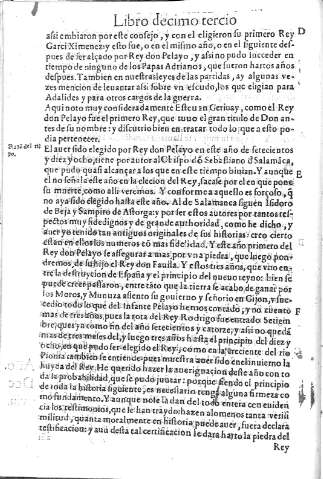 Libro decimo tercio
assi embiaron por este consejo, y con el eligieron su primero Rey
Garci Ximenez: y esto fue, o en el mismo año, o en el siguiente des-
pues de ser alçado por Rey don Pelayo, y assi no pudo succeder en
tiempo de ninguno de los Papas Adrianos, que fueron hartos años
despues. Tambien en nuestras leyes de las partidas, ay algunas ve-
zes mencion de leuantar assi sobre vn escudo, los que eligian para
Adalides y para otros cargos de la guerra.
Aqui noto muy consideradamente Esteuan de Garibay, como el Rey
don Pelayo fue el primero Rey, que tuuo el gran titulo de Don an-
tes de su nombre: y discurrio bien en tratar todo lo que a esto po-
dia pertenecer.
El auer sido elegido por Rey don Pelayo este año de setecientos
y diez y ocho, tiene por autor al Obispo dõ Sebastiano d Salamãca,
que pudo quasi alcançar a los que en este tiempo biuian. Y aunque
el no señala este año en la elecion del Rey, sacase por el en que pone
su muerte, como alli veremos. Y conforme a aquello es forçoso, q̃
no aya sido elegido hasta este año. Al de Salamanca siguen Isidoro
de Beja y Sampiro de Astorga: y por ser estos autores por tantos res-
pectos muy fidedignos y de grande authoridad, como he dicho, y
auer yo tenido tan antiguos originales de sus historias: creo cierto
estan en ellos los numeros cõ mas fidelidad. Y este año primero del
Rey don Pelayo se assegura mas por vna piedra, que luego pon-
dremos, de su hijo el Rey don Fauila. Y estos tres años, que vuo en-
tre la destruycion de España y el principio del nueuo reyno: bien se
puede creer passaron, entre tãto que la tierra se acabo de ganar por
los Moros, y Munuza assiento su gouierno y señorio en Gijon, y suc-
cedio todo lo que del Infante Pelayo hemos contado, y no cuento
mas de tres años, pues la rota del Rey Rodrigo fue entrado Setiem
bre, que es ya como fin del año setecientos y catorze, y assi no queda
mas de tres meses del, y luego tres años hasta el principio del diez y
ocho, en que pudo ser elegido el Rey, como en la creciente del rio
Pionia tambien se entiende, pues muestra auer sido en el inuierno la
huyda del Rey. He querido hazer la aueriguacion deste año con to
da la probabilidad, que se pudo juntar: porque siendo el principio
de toda la historia siguiente, es necessario tenga alguna firmeza co
mo fundamento. Y aunque no se la dan del todo entera con euiden
cia los testimonios, que se han traydo: hazen a lo menos tanta veri
similitud, quanta moralmente en historia puede auer, fuera de clara
testificacion: y aun desta tal certificacion se dara harto la piedra del
Rey